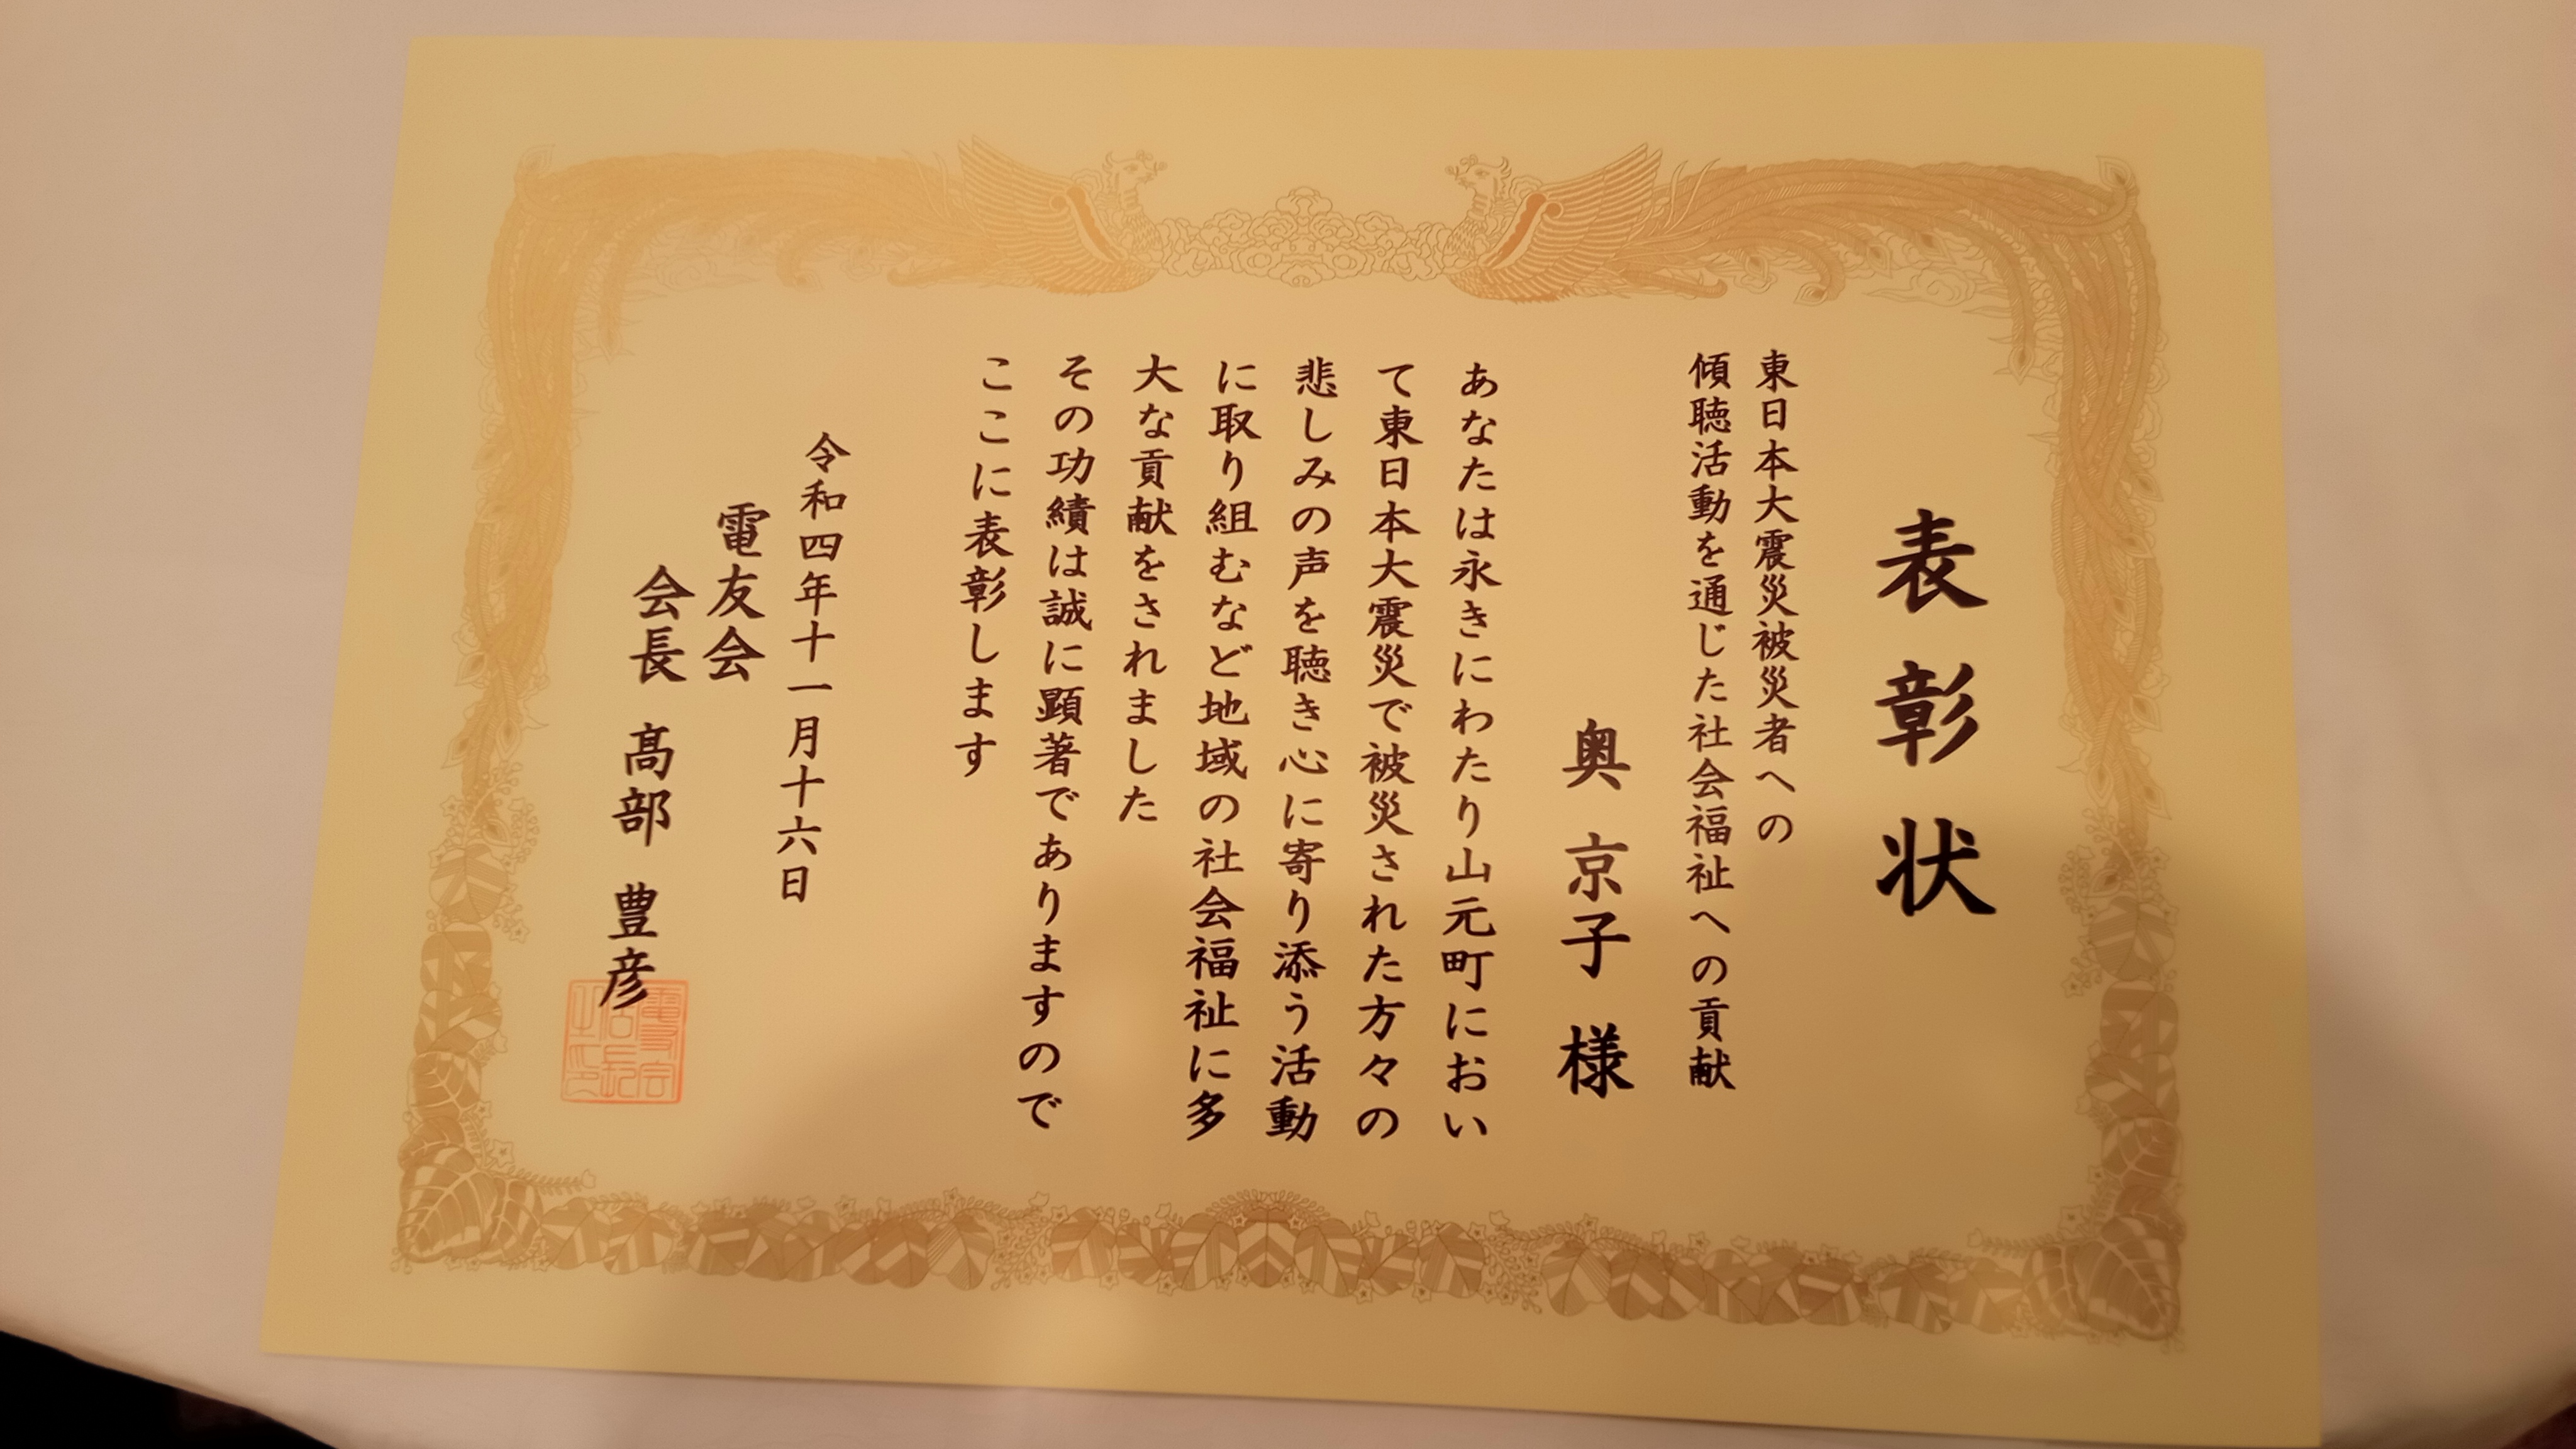 表彰状
東日本大震災被災者への
傾聴活動を通じた社会福祉への貢献
奥 京子 様
あなたは永きにわたり山元町におい
て東日本大震災で被災された方々の
悲しみの声を聴き心に寄り添う活動
に取り組むなど地域の社会福祉に多
大な貢献をされました
その功績は誠に顕著でありますので
ここに表彰します
令和四年十一月十六日
電友会
会長 髙部 豊彦
電友会
会長
之印